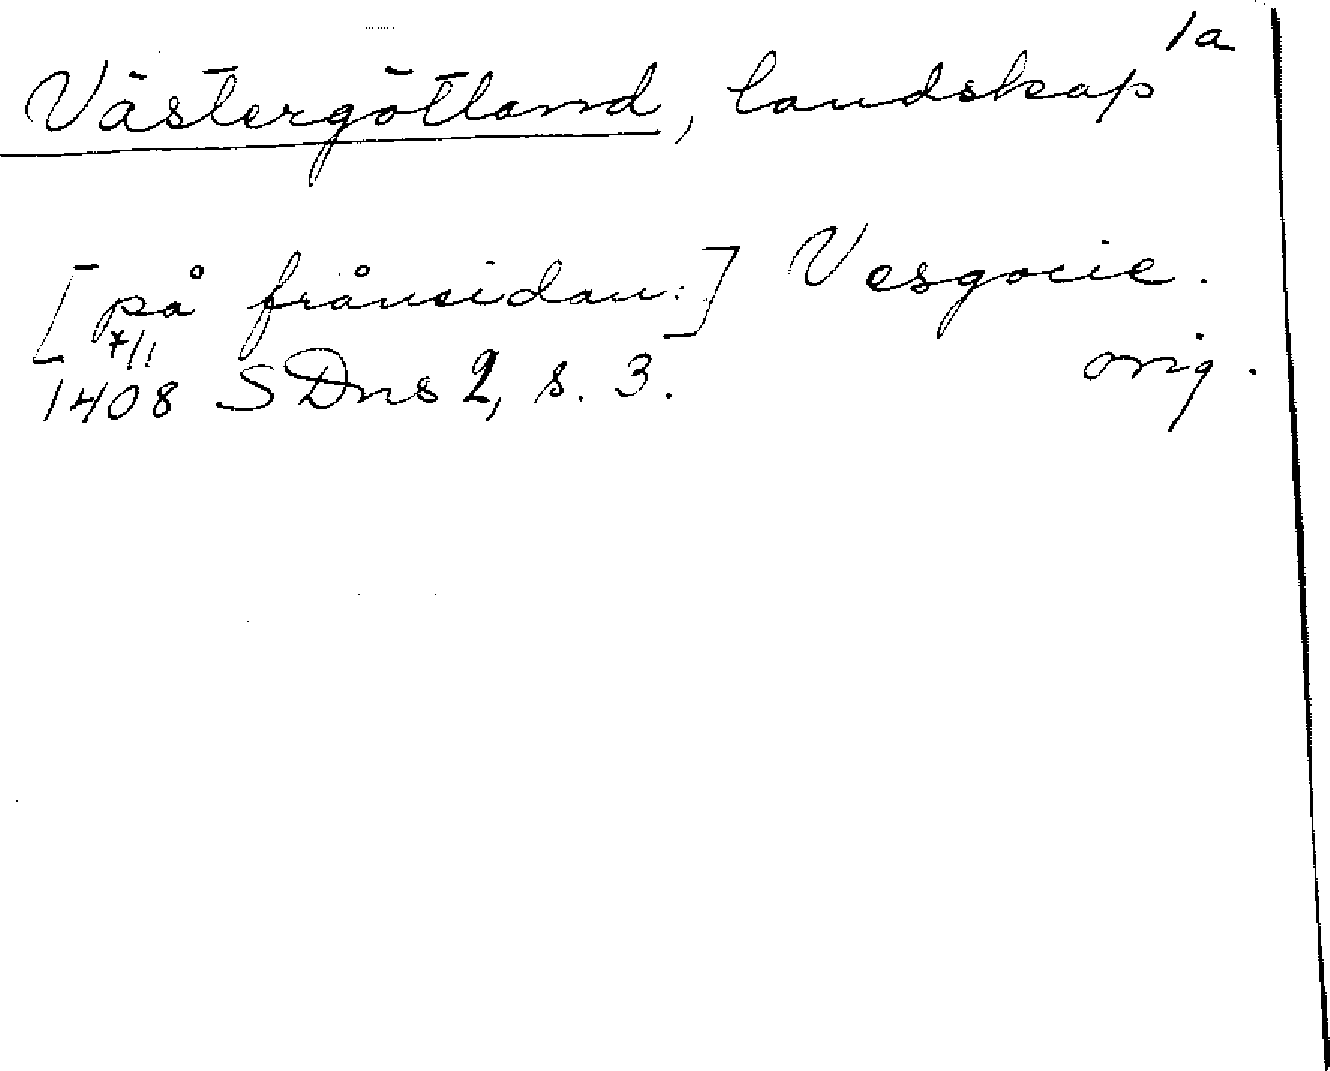 1a
Västergötland, landskap
[på frånsidan:] Vesgocie.
7/1
1408 SDns 2, s. 3. orig.